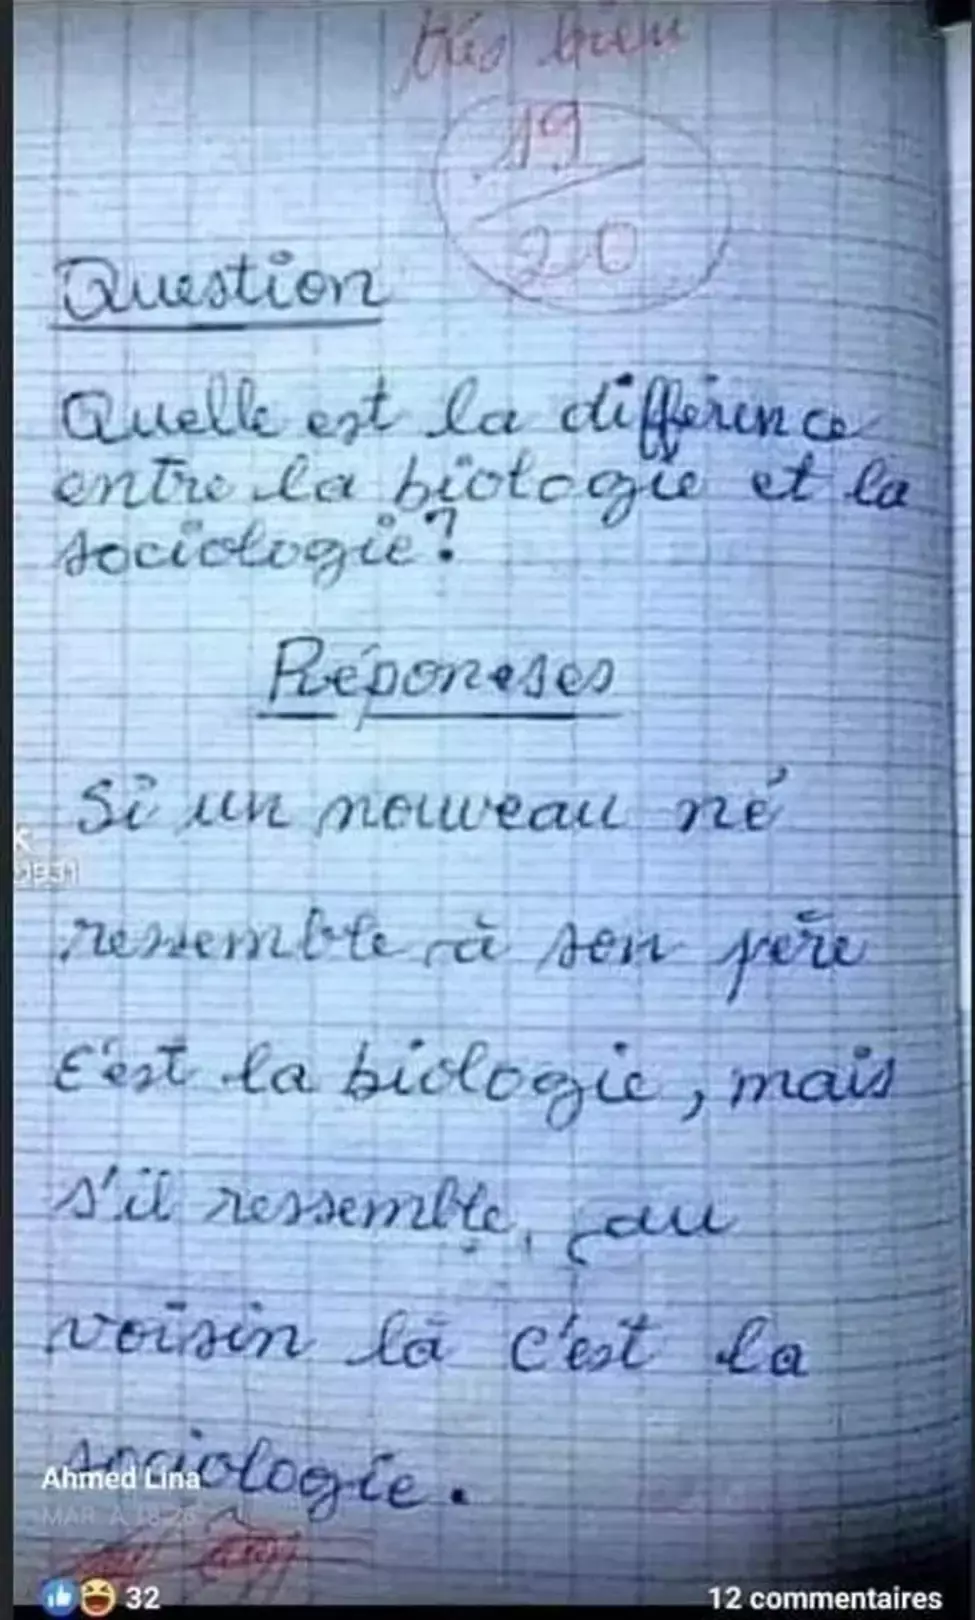 très bien
19
20
Question
Quelle est la différence
entre la biologie et la
sociologie?
Réponses
Si un nouveau né
ressemble à son père
c'est la biologie, mais
s'il ressemble, au
voisin là c'est la
sociologie.
Ahmed Lina
MAR. À 18:28
32
12 commentaires